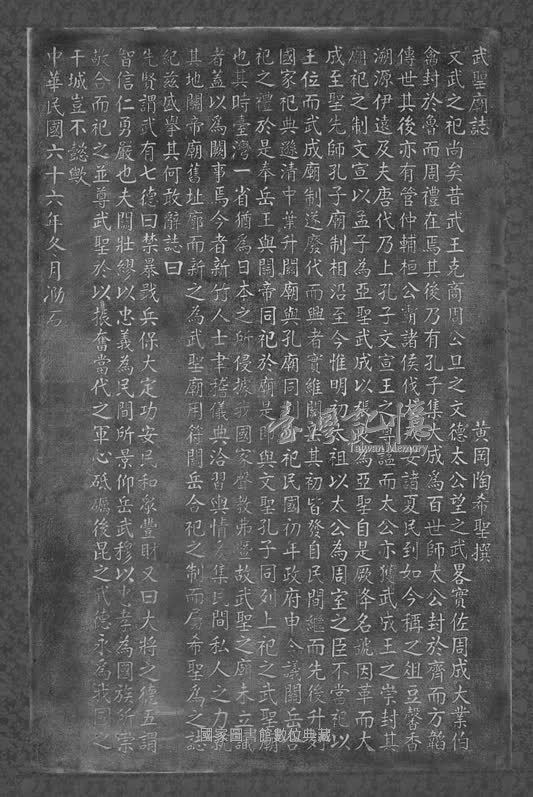 武聖廟誌
黃岡陶希聖撰
文武之祀尚矣昔武王克商周公旦之文德太公望之武畧實佐周成大業伯
禽封於魯而周禮在焉其後乃有孔子集大成為百世師太公封於齊而方韜
傳世其後亦有管仲輔桓公霸諸侯伐 安諸夏民到如今稱之俎豆馨香
溯源伊遠及夫唐代乃上孔子文宣王之尊諡而太公亦獲武成王之崇封其
廟祀之制文宣以孟子為亞聖武成以張良為亞聖自是厥降名號因革而大
成至聖先師孔子廟制相沿至今惟明初太祖以太公為周室之臣不當祀以
王位而武成廟制遂廢代而興者實維關岳其初皆發自民間繼而先後升列
國家祀典遜清中葉升關廟與孔廟同 祀民國初年政府申令議關岳合
祀之禮於是奉岳王與關帝同祀於廟是即與文聖孔子同列上祀之武聖廟
也其時臺灣一省猶為日本之所侵據我國家聲教弗 故武聖之廟未立識
者蓋以為闕事焉今者新竹人士聿稽儀典洽習輿情爰集民間私人之力就
其地關帝廟舊址廓而新之為武聖廟用符關岳合祀之制而屬希聖為之誌
紀茲盛舉其何敢辭誌曰
先賢謂武有七德曰禁暴戢兵保大定功安民和眾豐財又曰大將之德五謂
智信仁勇嚴也夫關壯繆以忠義為民間所景仰岳武穆以忠孝為國族所崇
敬合而祀之並尊武聖於以振奮當代之軍心砥礪後昆之武德永為我國之
干城豈不懿歟
中華民國六十六年冬月泐石
臺灣記憶
Taiwan Memory
國家圖書館數位典藏